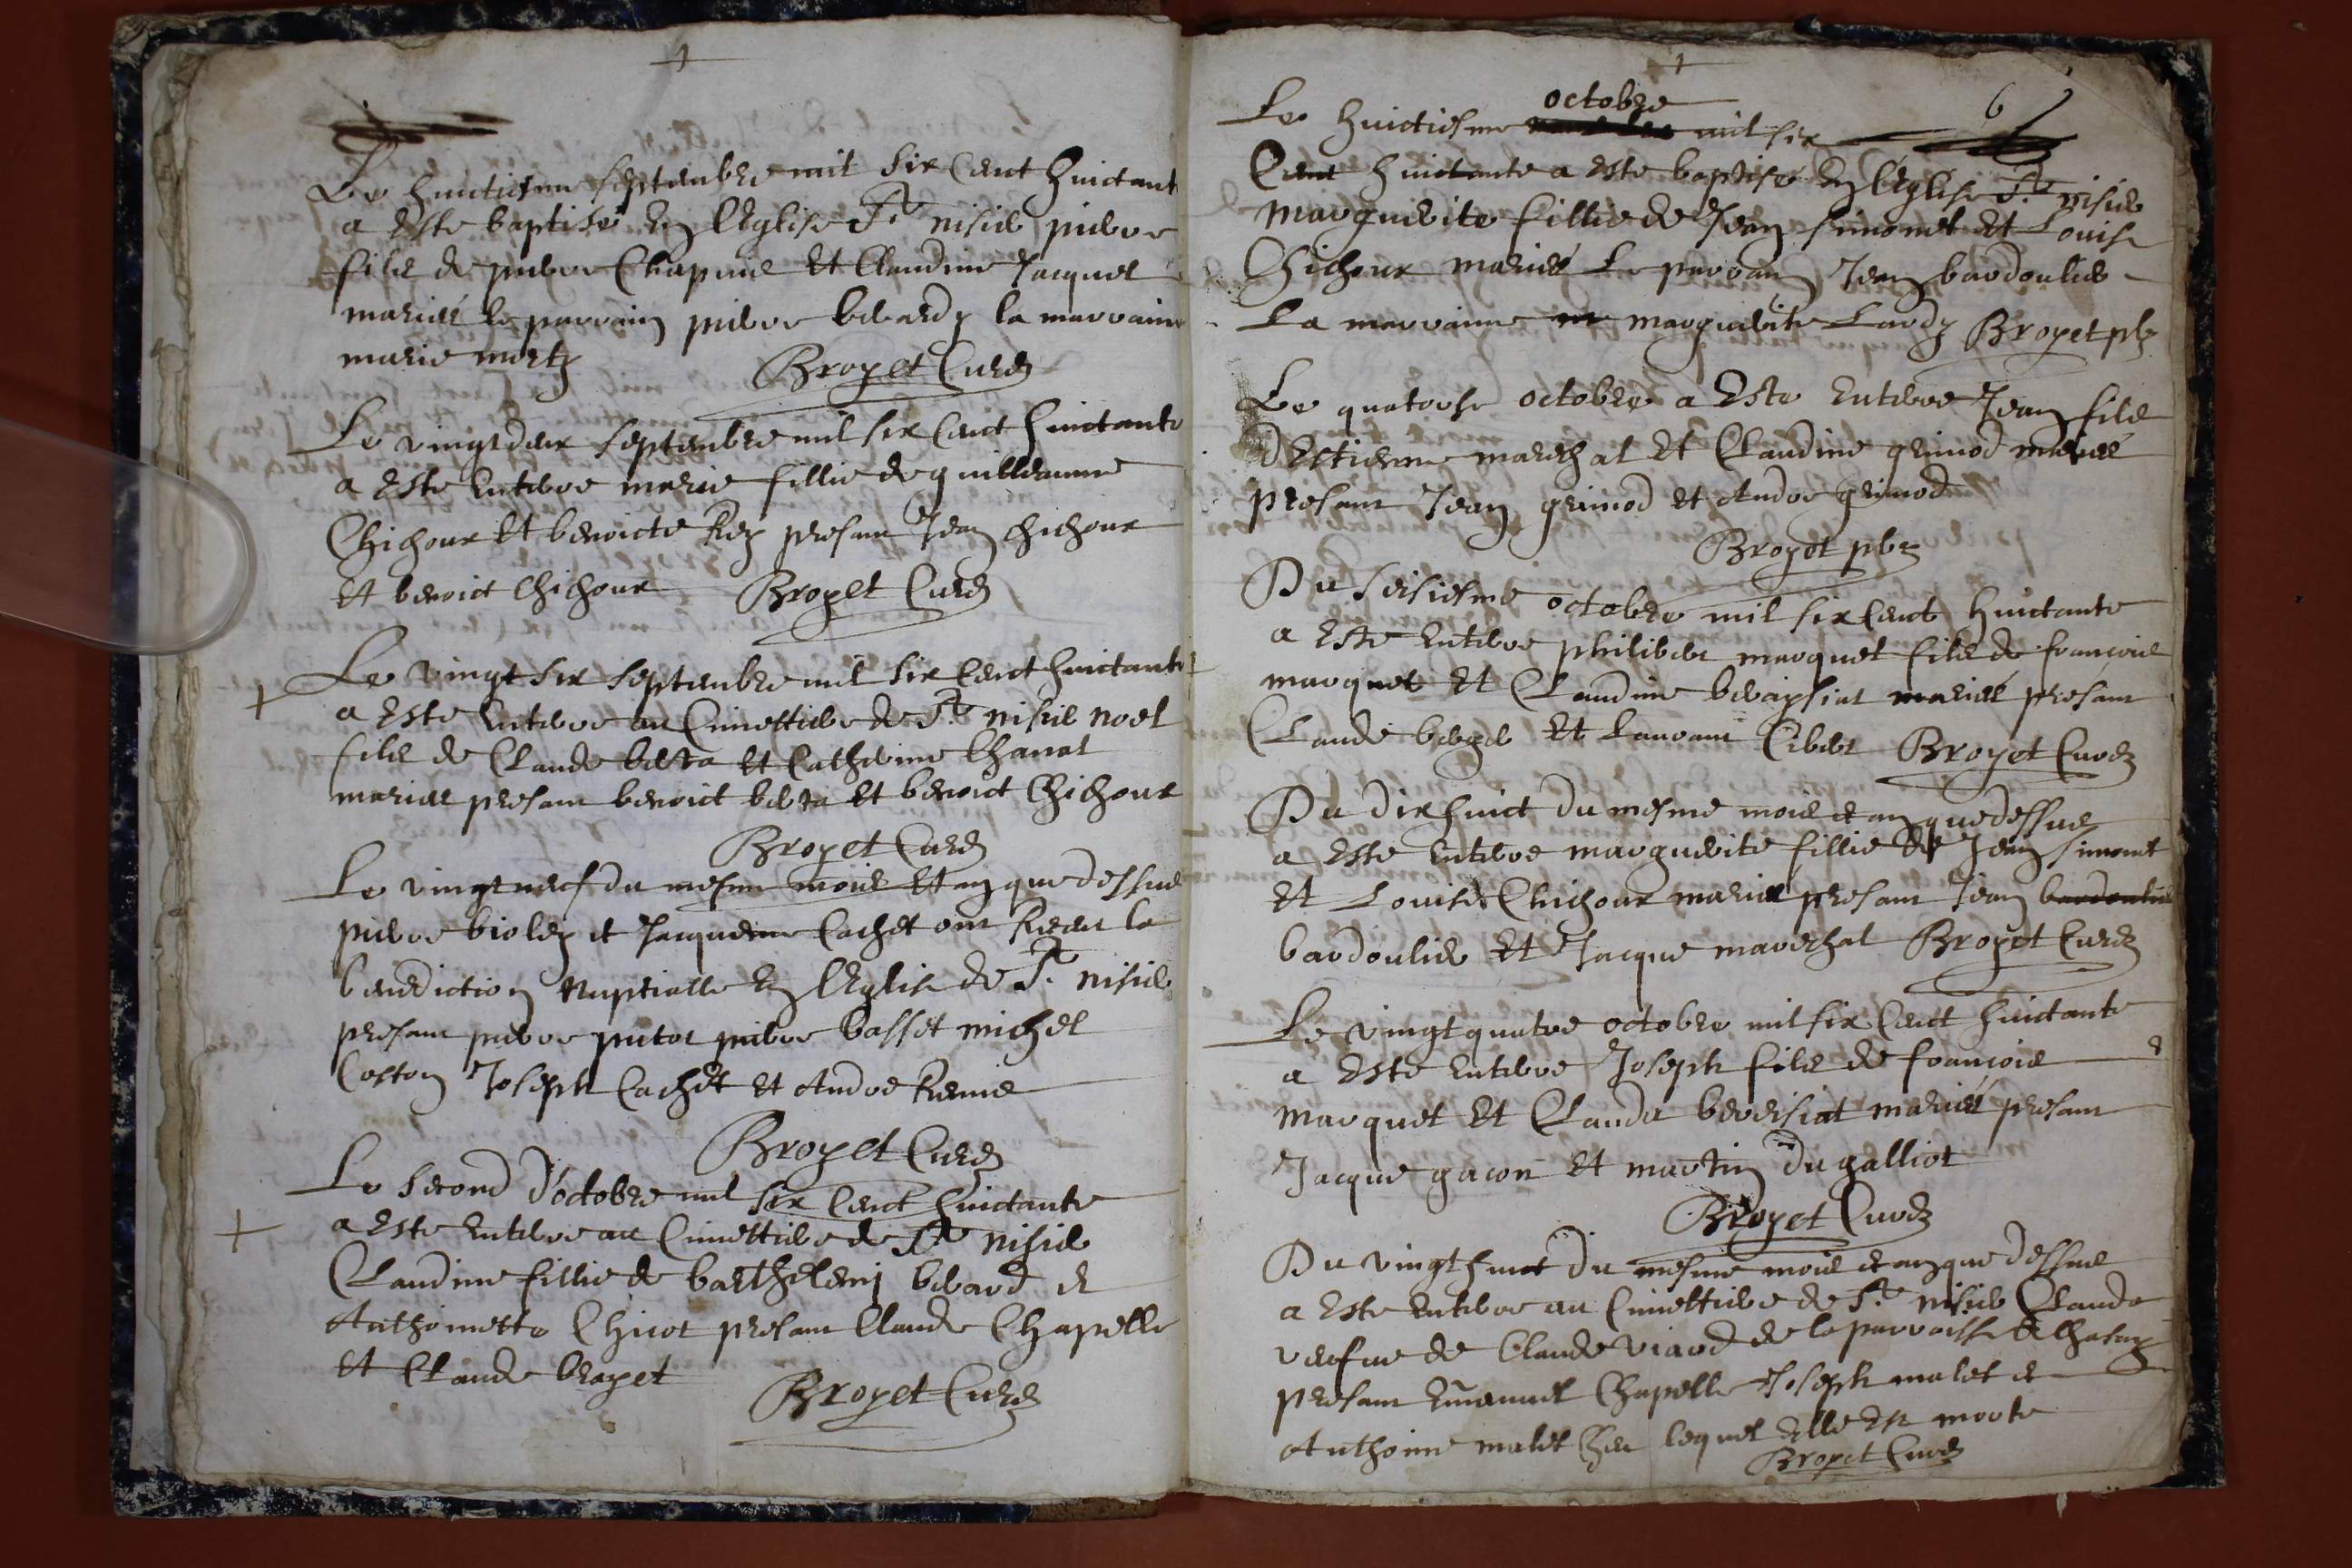 Le huictiesme septembre mil six cent huictante
a este baptisé en l'Eglise St nisier pierre
fils de pierre Chapuis et Claudine Jacquet
mariés le parrain pierre berardy la marraine
marie morty Broyet Curé
Le vingt deux septembre mil six cent huictante
a este enterre marie fillie de guillaume
Chichoux et benoicte Rey presant Jean chichoux
et benoict Chichoux Broyet Curé
Le vingt six septembre mil six cent huictante
a este enterre au Cimettiere de St nisier noel
fils de Claude et Catherine Chanat
mariés presant benoict et benoict Chichoux
Broyet Curé
Le vingt neuf du mesme mois et an que dessus
pierre bioley et Jacqueme Cachet ont receu la
benediction nuptialle en l'Eglise de St nisier
presant pierre putot pierre basset michel
Coston Joseph Cachet et Andre Remie
Broyet Curé
Le second d'octobre mil six cent huictante
a este enterre au Cimettiere de St nisier
Claudine fillie de barthelemj berard et
Anthoinette Chicot presant Claude Chapelle
et Claude broyet
Broyet Curé
6
octobre
Le huictiesme mil six
Cent huictante a este baptisé en l'Eglise St nisier
marguerite fillie de Jean simonet et Louise
Chichoux mariés Le parrain Jean bardoulier
La marraine marguerite Lardy Broyet pbr
Le quatorse octobre a este enterre Jean fils
d'Estienne marechal et Claudine grimod mariés
presant Jean grimod et Andre grimod
Broyet pbr
Du seisiesme octobre mil six cent huictante
a este enterre philibert marquet fils de françois
marquet et Claudine mariés presant
Claude berger et Laurant Cibert Broyet Curé
Du dix huict du mesme mois et an que dessus
a este enterre marguerite fillie de Jean simonet
et Louise Chichoux mariés presant Jean bardoulier
bardoulier et Jacque marechal Broyet Curé
Le vingt quatre octobre mil six cent huictante
a este enterre Joseph fils de françois
marquet et Clauda berersiat mariés presant
Jacque gacon et martin du galliot
Broyet Curé
Du vingt huict du mesme mois et an que dessus
a este enterre au Cimettiere de St nisier Claude
veufue de Claude viard de la parroisse de
presant Emanuel Chapelle Joseph malet et
Anthoine malet Chez lequel elle est morte
Broyet Curé